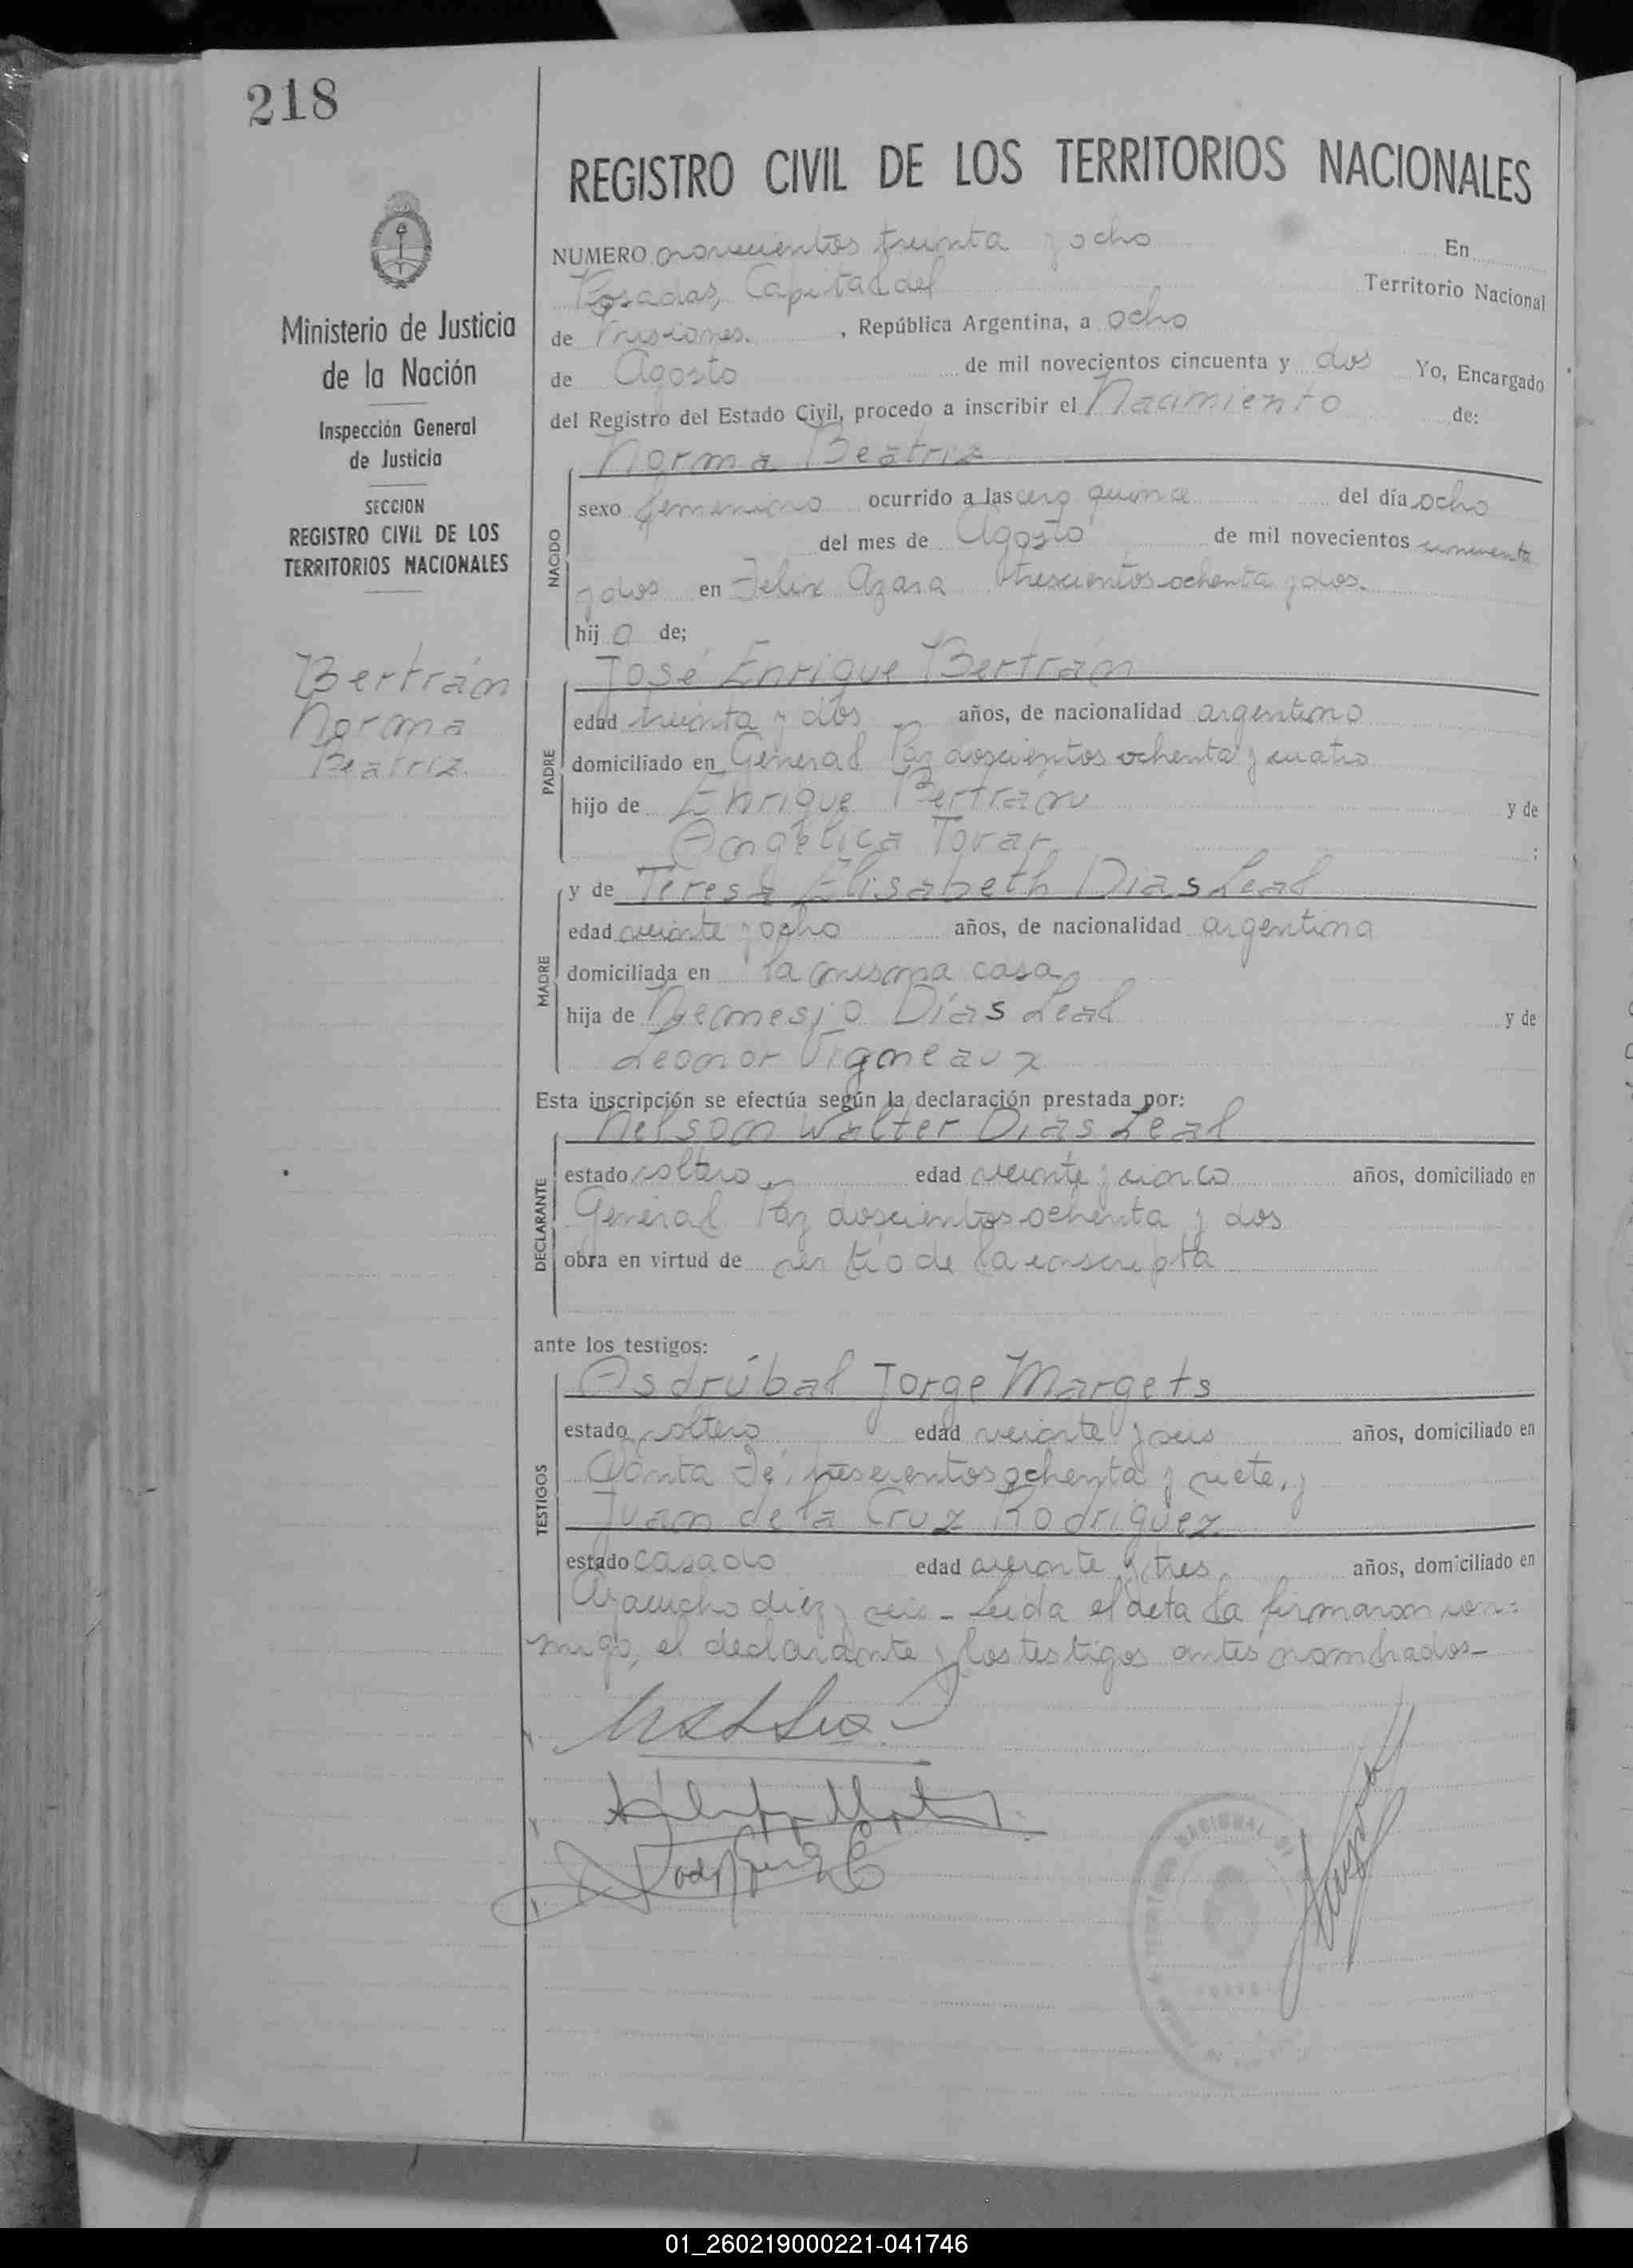 218
REGISTRO CIVIL DE LOS TERRITORIOS NACIONALES
Ministerio de Justicia
de la Nación
Inspección General
de Justicia
SECCION
REGISTRO CIVIL DE LOS
TERRITORIOS NACIONALES
Bertrán
Norma
Beatriz.
NUMERO novecientos treinta y ocho En
Posadas, Capital del Territorio Nacional
de Misiones. , República Argentina, a ocho
de Agosto de mil novecientos cincuenta y dos Yo, Encargado
del Registro del Estado Civil, procedo a inscribir el Nacimiento de:
NACIDO
Norma Beatriz
sexo femenino ocurrido a las cero quince del día ocho
del mes de Agosto de mil novecientos cincuenta
y dos en Felix Azara trescientos ochenta y dos.
hij a de;
PADRE
José Enrique Bertrán
edad treinta y dos años, de nacionalidad argentino
domiciliado en General Paz doscientos ochenta y cuatro
hijo de Enrique Bertrán y de
Angélica Tovar ;
MADRE
y de Teresa Elisabeth Dias Leal
edad veinte y ocho años, de nacionalidad argentina
domiciliada en la misma casa
hija de Nemesio Días Leal y de
Leonor Vigneaux
Esta inscripción se efectúa según la declaración prestada por:
DECLARANTE
Nelson Walter Dias Leal
estado soltero edad veinte y cinco años, domiciliado en
General Paz doscientos ochenta y dos
obra en virtud de ser tío de la inscripta
ante los testigos:
TESTIGOS
Asdrúbal Jorge Margets
estado soltero edad veinte y seis años, domiciliado en
Santa Fé, trescientos ochenta y siete, y
Juan de la Cruz Rodriguez
estado casado edad veinte y tres años, domiciliado en
Ayacucho diez y seis - Leida el acta la firmaron con=
migo, el declarante y los testigos antes nombrados-
01_260219000221-041746